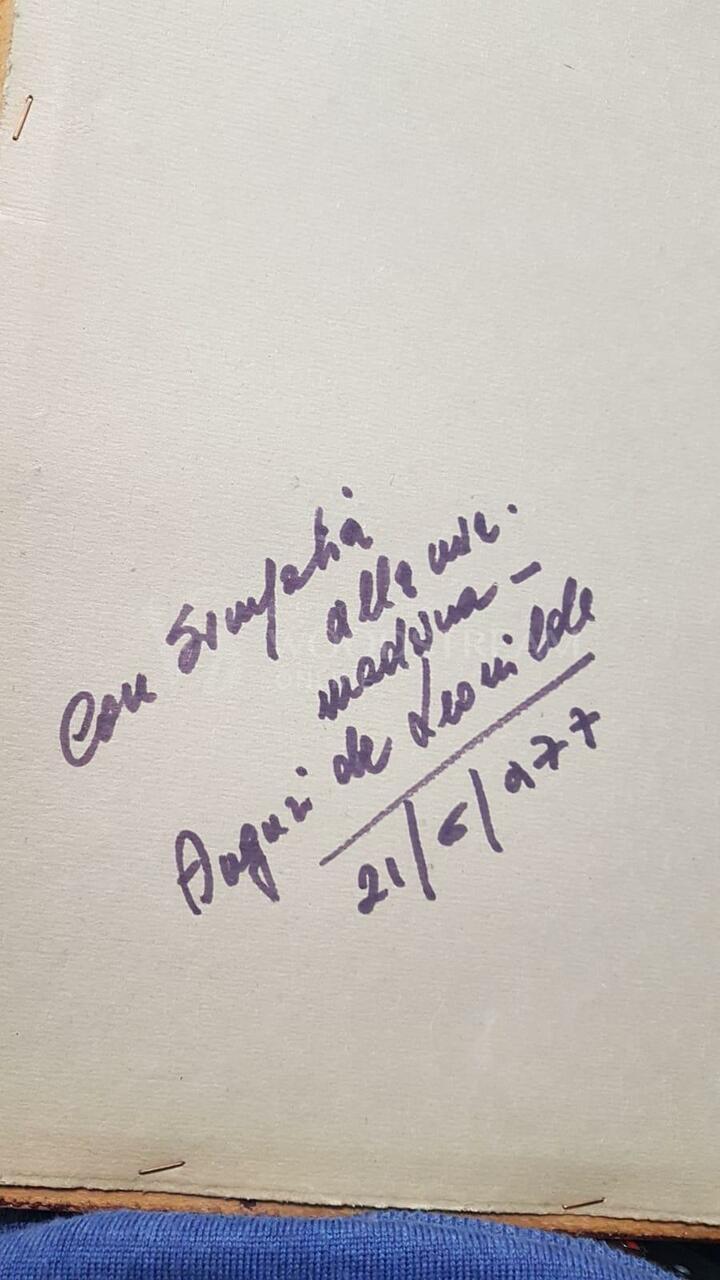 Con simpatia
alla mia
madrina -
Auguri da Leonilde
21/6/977